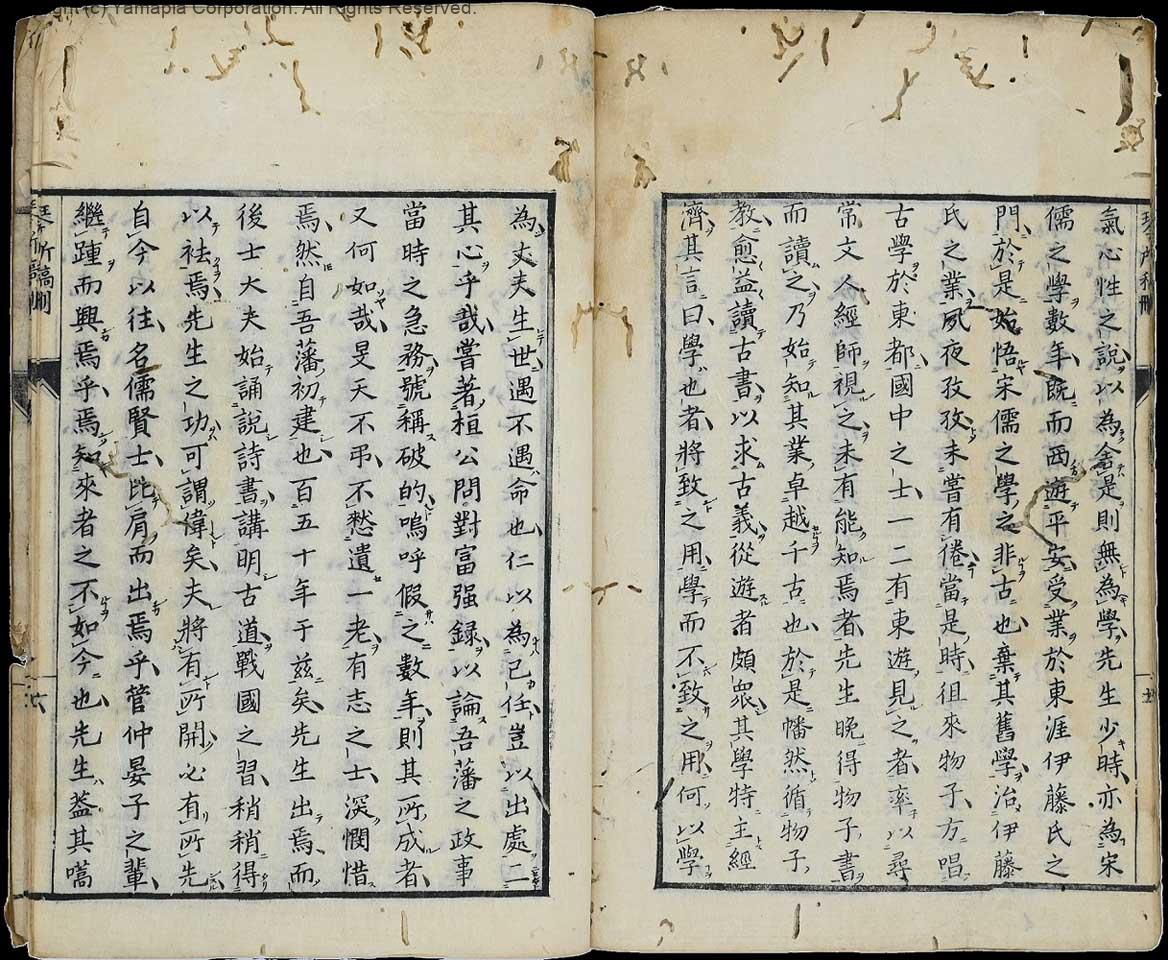 (c) Yamapia Corporation. All Rights Reserved.
氣心性之說以為禽是則無為學先生少時亦為宋
儒之學數年既而西遊平安受業於東涯伊藤氏之
門於是始悟宋儒之學之非古也棄其舊學治伊藤
氏之業夙夜孜孜未嘗有倦當是時徂來物子方唱
古學於東都國中之士一二有東遊見之者率以尋
常文人經師視之未有能知焉者先生晚得物子書
而讀之乃始知其業卓越千古也於是幡然循物子
教愈益讀古書以求古義從遊者頗眾其學特主經
濟其言曰學也者將致之用學而不致之用何以學
為丈夫生世遇不遇命也仁以為己任豈以出處二
其心乎哉嘗著桓公問對富强録以論吾藩之政事
當時之急務號稱破的嗚呼假之數年則其所成者
又何如哉旻天不弔不憖遺一老有志之士深憫惜
焉然自吾藩初建也百五十年于茲矣先生出焉而
後士大夫始誦說詩書講明古道戰國之習稍稍得
以袪焉先生之功可謂偉矣夫將有所開必有所先
自今以往名儒賢士比肩而出焉乎管仲晏子之輩
繼踵而興焉乎焉知來者之不如今也先生蓋其嚆
所稿刪